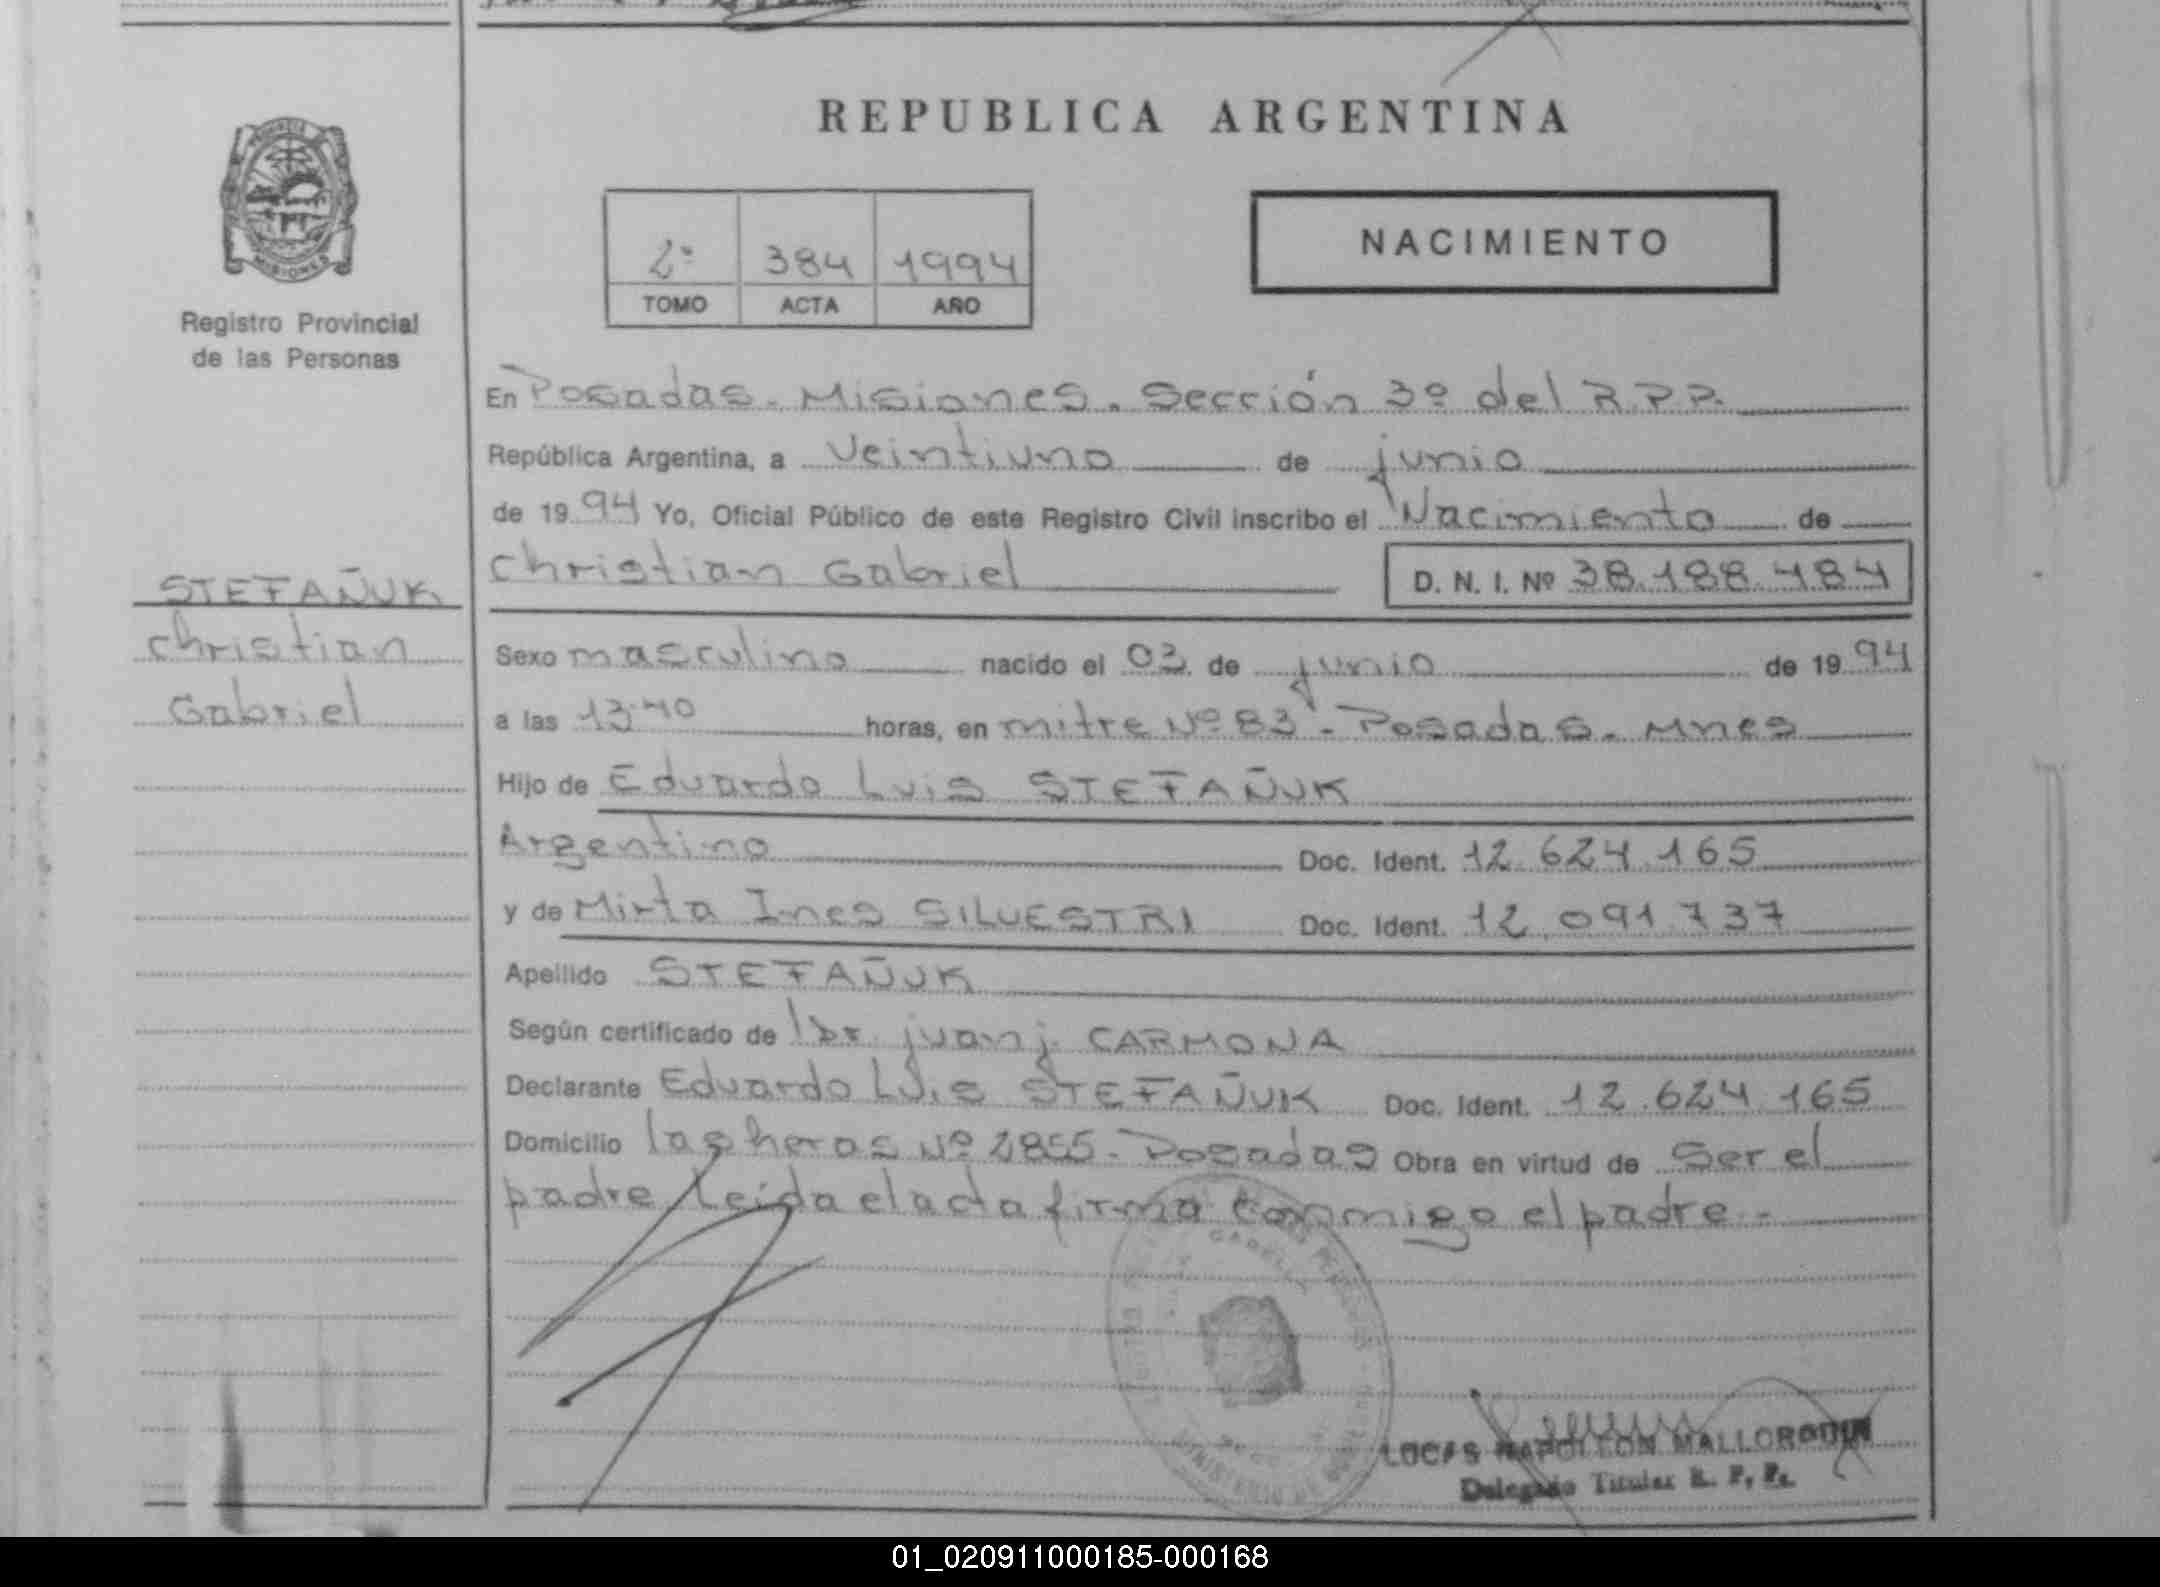 REPUBLICA ARGENTINA
PROVINCIA
MISIONES
Registro Provincial
de las Personas
2º 384 1994
TOMO ACTA AÑO
NACIMIENTO
En Posadas. Misiones. Sección 3º del R.P.P.
República Argentina, a Veintiuno de junio
de 1994 Yo, Oficial Público de este Registro Civil inscribo el Nacimiento de
Christian Gabriel D. N. I. Nº 38.188.484
STEFAÑUK
Christian
Gabriel
Sexo masculino nacido el 03 de junio de 1994
a las 13:40 horas, en mitre Nº 83 - Posadas. Mnes
Hijo de Eduardo Luis STEFAÑUK
Argentino Doc. Ident. 12.624.165
y de Mirta Ines SILVESTRI Doc. Ident. 12.091.737
Apellido STEFAÑUK
Según certificado de Dr. juan j. CARMONA
Declarante Eduardo Luis STEFAÑUK Doc. Ident. 12.624.165
Domicilio las heras Nº 2855 - Posadas Obra en virtud de Ser el
padre Leída el acta firma conmigo el padre.-
LUCAS NAPOLEON MALLORQUIN
Delegado Titular R. P. P.
01_020911000185-000168